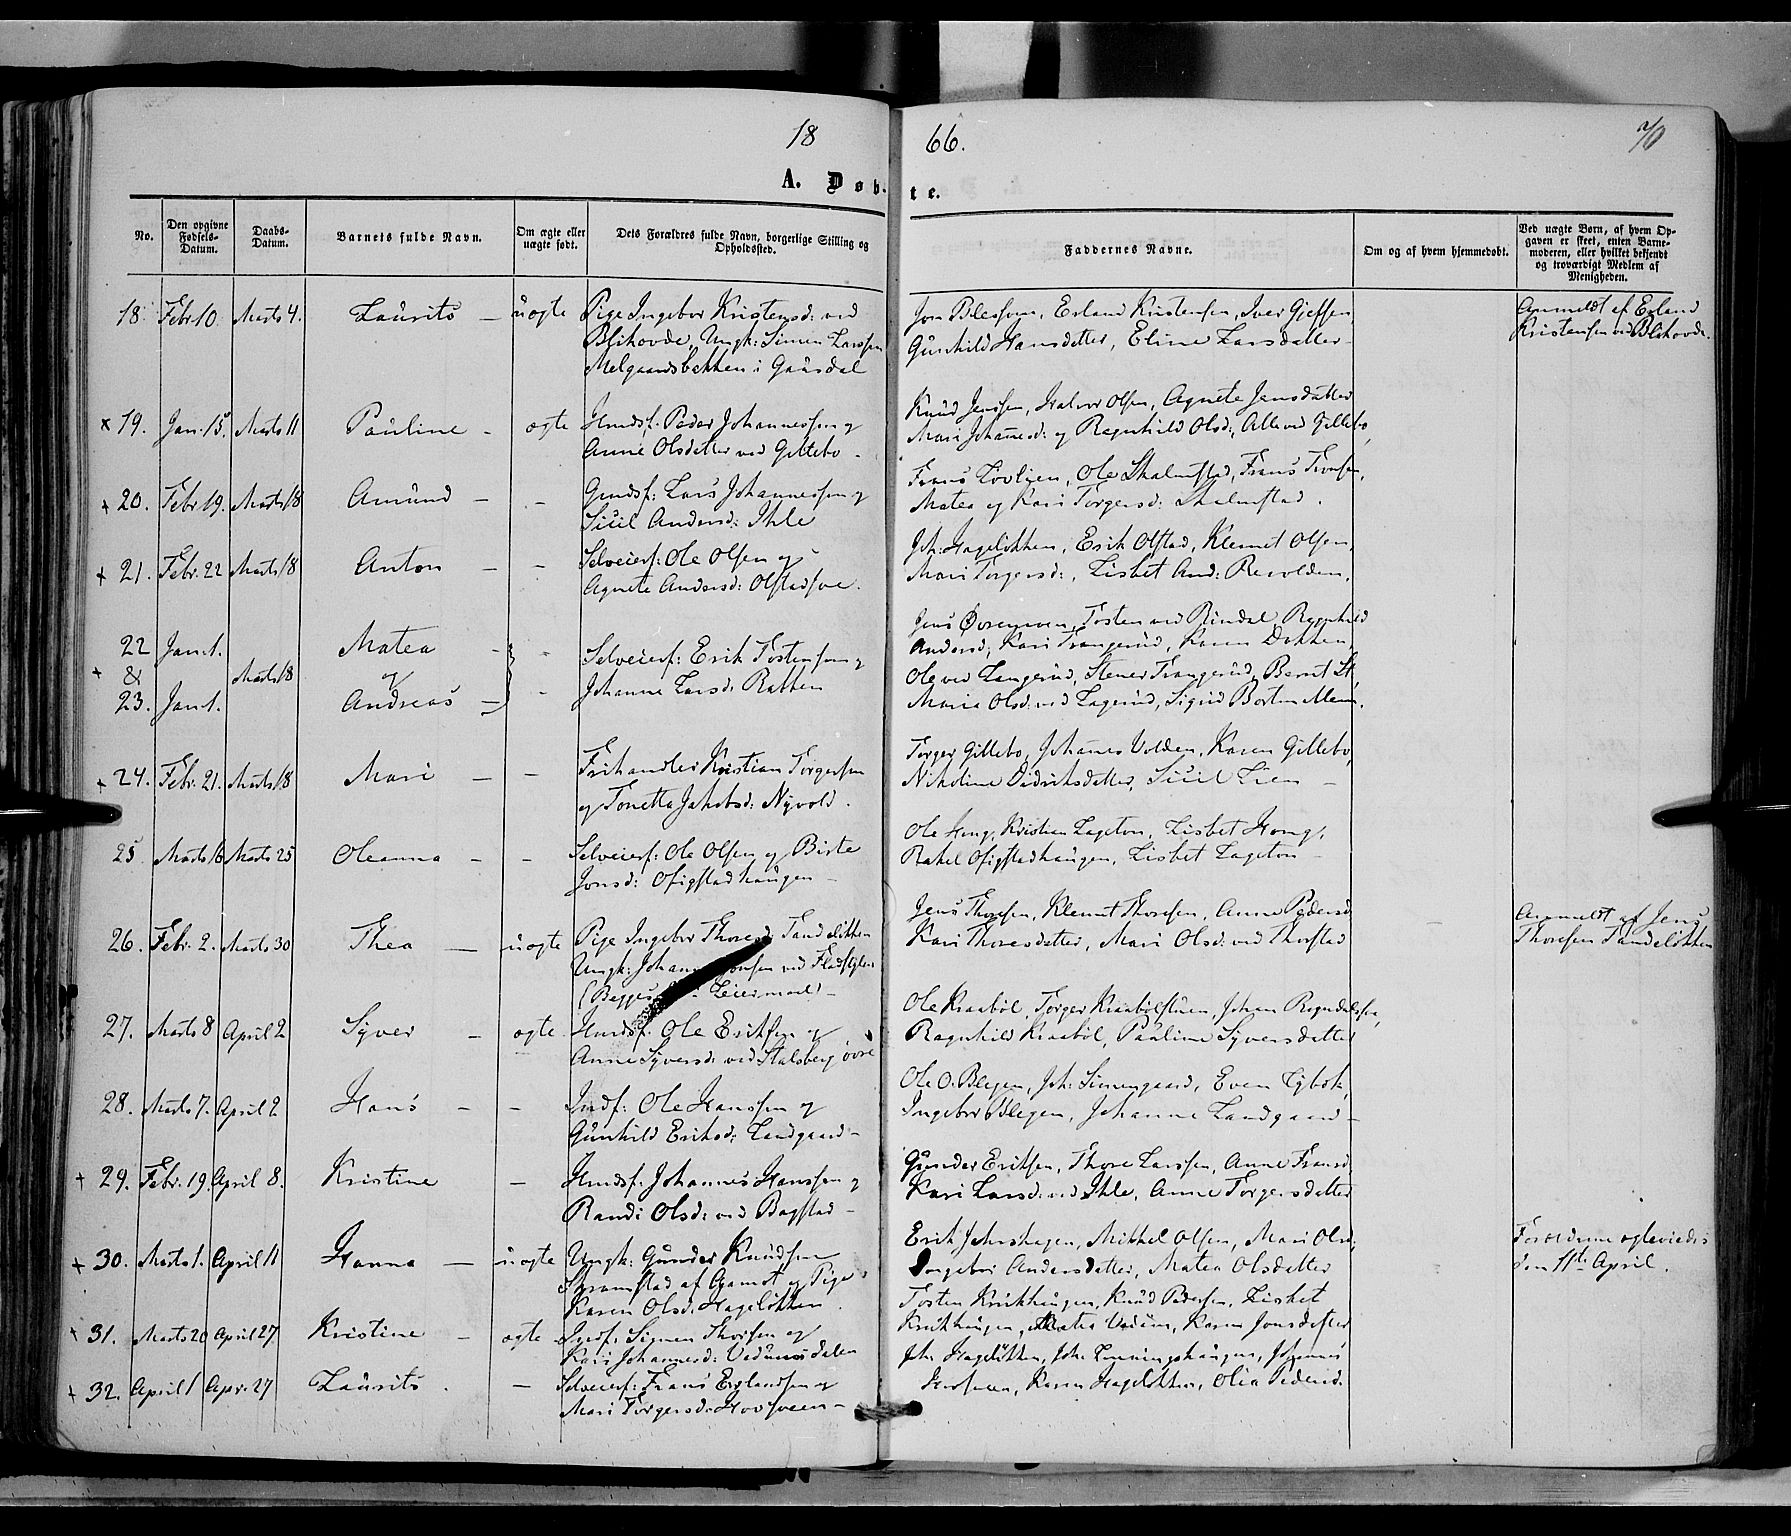 18 66. 70
A. Døb- te.
No. Den opgivne Fødsels-Datum. Daabs-Datum. Barnets fulde Navn. Om ægte eller uægte født. Dets Forældres fulde Navn, borgerlige Stilling og Opholdssted. Faddernes Navne. Om og af hvem hjemmedøbt. Ved uægte Børn, af hvem Opgaven er skeet, enten Barnemoderen, eller hvilket bekjendt og troværdigt Medlem af Menigheden.
18. Febr. 10. Marts 4. Laurits – uægte Pige Ingebor Kristensd: ved
Blihovde, Ungk: Simen Larssen
Melgaardsbakken i Gausdal
Erland Kristensen, Iver
Gunhild Hansdatter, Eline Larsdatter
Anmeldt af Erland
Kristensen ved Blihovde.
x 19. Jan. 15. Marts 11 Pauline – ægte Huusf: Peder Johannessen og
Anne Olsdatter ved Gillebo –
Knud Jenssen, Halvor Olsen, Agnete Jensdatter
Mari Johannesd: og Ragnhild Olsd:, Alle ved Gillebo,
+ 20. Febr. 19. Marts 18 Amund – – Gmdsf: Lars Johannessen og
Sicil Andersd: Ihle
Frans Lövlien, Ole Skalmstad, Frans
Matea og Kari Torgersd: Skalmstad.
+ 21. Febr. 22 Marts 18 Anton – – Selveierf: Ole Olsen og
Agnete Andersd: Olstadsve.
Joh: Hagelökken, Erik Olstad, Klemet Olsen,
Mari Torgersd:, Lisbet And: Revolden.
22 Jan 1. Matea
+ & Marts 18 og
23. Jan 1. Andreas
Selveierf: Erik Tostensen og
Johanne Larsd: Bakken
Jens Tosten ved Rindal, Ragnhild
Andersd, Kari Trangerud, Karen Dokken,
Ole ved Langerud, Stener Trangerud, Bernt
Maria Olsd: ved Lagerud, Sigrid
+ 24. Febr. 21. Marts 18 Mari – – Frihandler Kristian Torgersen
og Tonetta Jakobsd: Nyvold.
Torger Gillebo, Johannes Volden, Karen Gillebo,
Nikoline Didriksdatter, Sicil Lien –
25 Marts 16 Marts 25 Oleanna – – Selveierf: Ole Olsen og Birte
Jonsd: Ofigstadhaugen –
Ole Hong, Kristian Lageton, Lisbet Hong,
Rakel Ofigstadhaugen, Lisbet Lageton –
26. Febr. 2. Marts 30 Thea – uægte Pige Ingebor Thoresd: Tandelökken
Ungk: Johan ved
Leiermaal) –
Jens Thoresen, Klemet Thoresen, Anne Pedersd,
Kari Thoresdatter, Mari Olsd: ved Thorstad
Anmeldt af Jens
Thoresen Tandelökken
27. Marts 8 April 2 Syver – ægte Huusf: Ole Eriksen og
Anne Syversd: ved Stalsberg övre
Ole Kraaböl, Torger Kraabölstuen, Johan
Ragnhild Kraaböl, Pauline Syversdatter
28. Marts 7. April 2 Hans – – Indf: Ole Hanssen og
Gunhild Eriksd: Landgaard –
Ole O. Blegen, Joh: Simengaard, Even
Ingebor Blegen, Johanne Landgaard –
+ 29. Febr. 19. April 8. Kristine – Huusf: Johannes Hanssen og
Randi Olsd: ved Bogstad –
Gunder Eriksen, Thore Larssen, Anne Fransd,
Kari Larsd: ved Ihle, Anne Torgersdatter
+ 30. Marts 1. April 11 Hanna – uægte Ungk: Gunder Knudsen
Skramstad af og Pige
Karen Olsd: Hagelökken.
Erik Jehshagen, Mikkel Olsen, Mari Olsd,
Ingebor Andersdatter, Matea Olsdatter
Forældrene ægteviedes
den 11te April.
+ 31. Marts 20 April 27 Kristine – ægte Indf: Simen Thoresen og
Kari Johannesd: Vedumsdalen
Tosten Krikhaugen, Knud Pedersen, Lisbet
Krikhaugen, Matea Vedum, Karen Jonsdatter
+ 32. April 1 Apr. 27 Laurits. – Selveierf: Frans Erlandsen og
Mari Torgersd: Hovsveen –
Joh: Hagelökken, Joh: Johannes
Hovsveen, Karen Hagelökken, Olia Pedersd.